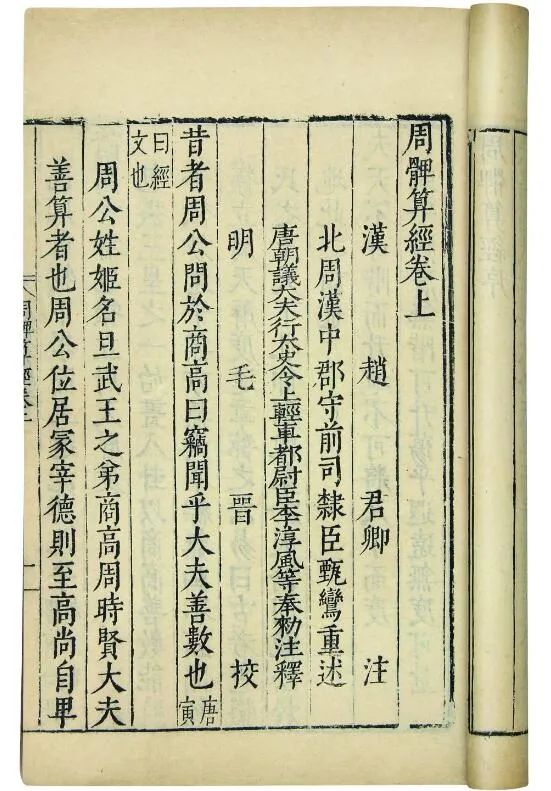 周髀算經卷上
漢 趙 君卿 注
北周漢中郡守前司隸臣甄鸞重述
唐朝議大夫行太史令上輕車都尉臣李淳風等奉勑注釋
明 毛 晋 挍
昔者周公問於商高曰竊聞乎大夫善數也唐寅
曰經文也
周公姓姬名旦武王之弟商高周時賢大夫
善算者也周公位居冡宰德則至高尚自卑
周髀算經卷上
一
周髀算經序